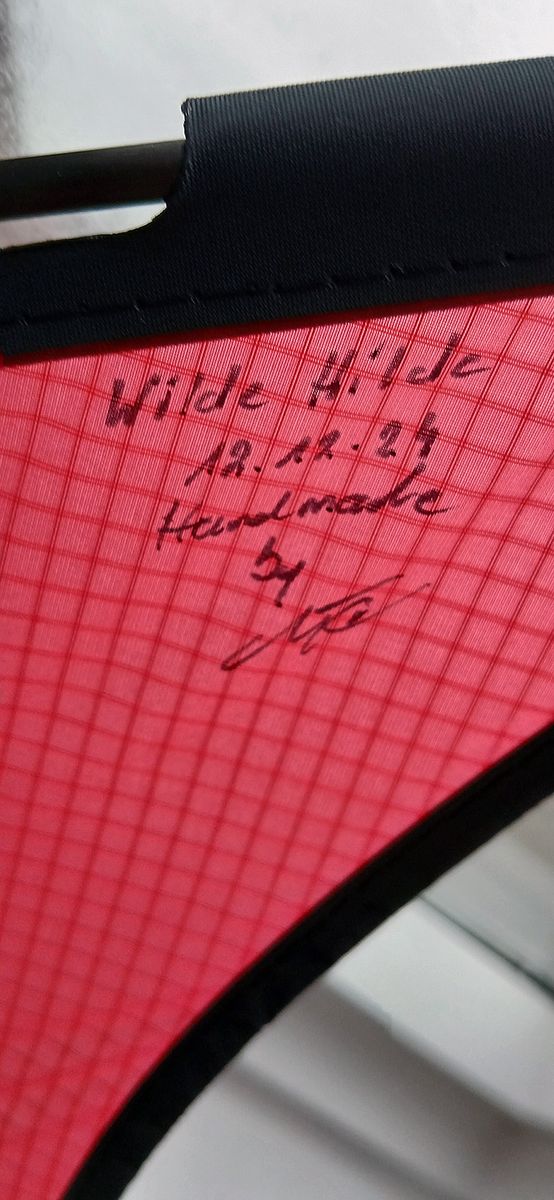 Wilde Hilde
12.12.24
Handmade
by